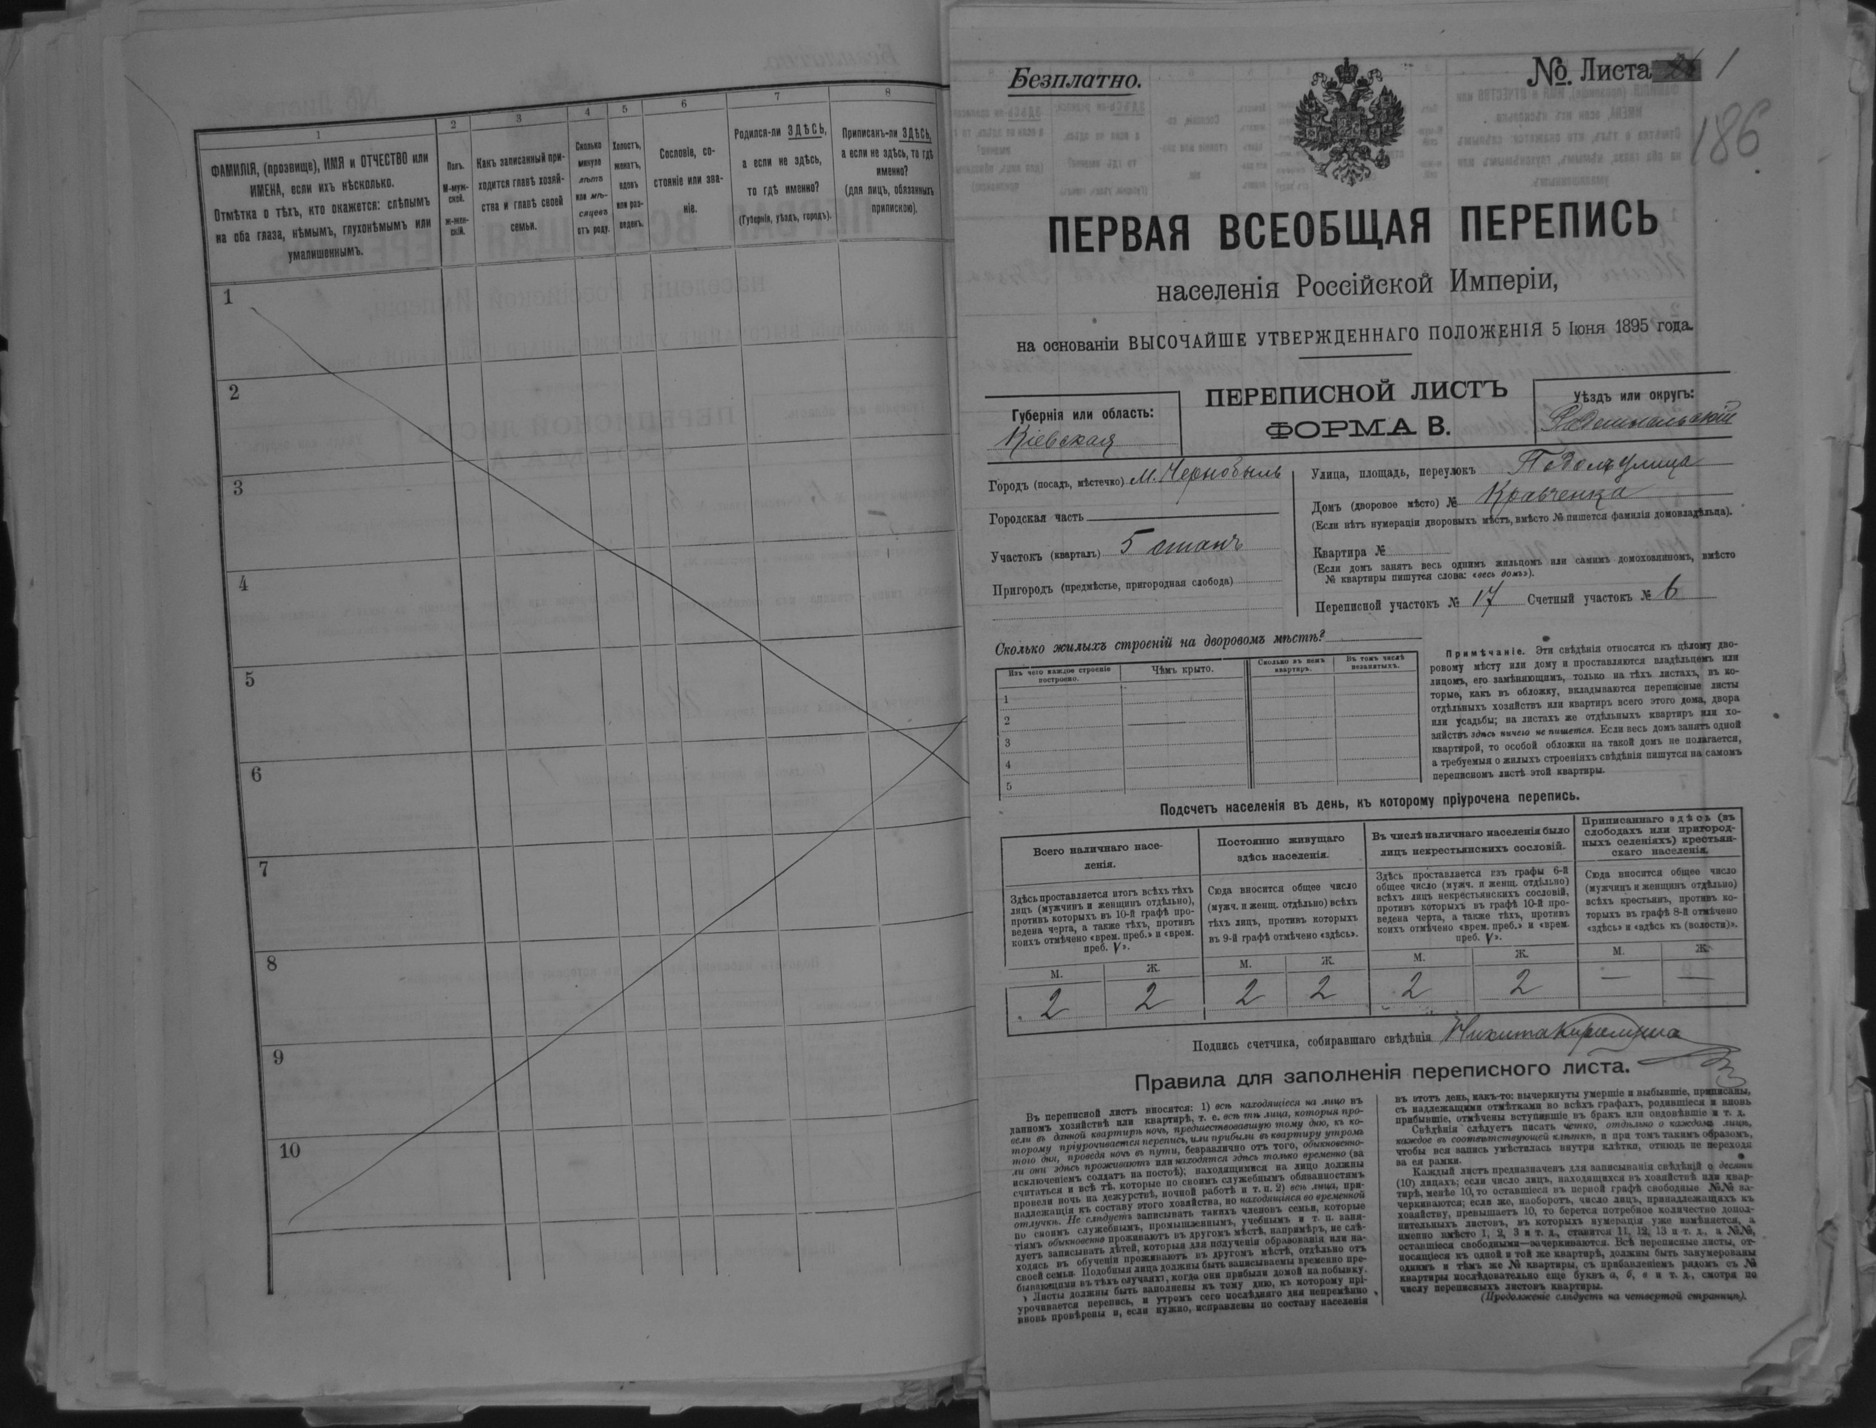 1
2
3
4
5
6
7
8
ФАМИЛІЯ, (прозвище), ИМЯ и ОТЧЕСТВО или
ИМЕНА, если ихъ нѣсколько.
Отмѣтка о тѣхъ, кто окажется: слѣпымъ
на оба глаза, нѣмымъ, глухонѣмымъ или
умалишеннымъ.
Полъ.
М-муж-
ской.
ж-жен-
скій.
Какъ записанный при-
ходится главѣ хозяй-
ства и главѣ своей
семьи.
Сколько
минуло
лѣтъ
или мѣ-
сяцевъ
отъ роду.
Холостъ,
женатъ,
вдовъ
или раз-
веденъ.
Сословіе, со-
стояніе или зва-
ніе.
Родился-ли ЗДѢСЬ,
а если не здѣсь,
то гдѣ именно?
(Губернія, уѣздъ, городъ).
Приписанъ-ли ЗДѢСЬ,
а если не здѣсь, то гдѣ
именно?
(для лицъ, обязанныхъ
припискою).
1
2
3
4
5
6
7
8
9
10
Безплатно.
№ Листа 1
186
ПЕРВАЯ ВСЕОБЩАЯ ПЕРЕПИСЬ
населенія Россійской Имперіи,
на основаніи ВЫСОЧАЙШЕ УТВЕРЖДЕННАГО ПОЛОЖЕНІЯ 5 Іюня 1895 года.
Губернія или область:
Кіевская
ПЕРЕПИСНОЙ ЛИСТЪ
ФОРМА В.
Уѣздъ или округъ:
Радомысльскій
Городъ (посадъ, мѣстечко) м. Чернобыль
Городская часть
Участокъ (кварталъ) 5 станъ
Пригородъ (предмѣстье, пригородная слобода)
Улица, площадь, переулокъ Подолъ улица
Домъ (дворовое мѣсто) № Кравченка
(Если нѣтъ нумераціи дворовыхъ мѣстъ, вмѣсто № пишется фамилія домовладѣльца).
Квартира №
(Если домъ занятъ весь однимъ жильцомъ или самимъ домохозяиномъ, вмѣсто
№ квартиры пишутся слова: «весь домъ»).
Переписной участокъ № 17 Счетный участокъ № 6
Сколько жилыхъ строеній на дворовомъ мѣстѣ?
Изъ чего каждое строеніе
построено.
Чѣмъ крыто.
Сколько въ немъ
квартиръ.
Въ томъ числѣ
незанятыхъ.
1
2
3
4
5
Примѣчаніе. Эти свѣдѣнія относятся къ цѣлому дво-
ровому мѣсту или дому и проставляются владѣльцемъ или
лицомъ, его замѣняющимъ, только на тѣхъ листахъ, въ ко-
торые, какъ въ обложку, вкладываются переписные листы
отдѣльныхъ хозяйствъ или квартиръ всего этого дома, двора
или усадьбы; на листахъ же отдѣльныхъ квартиръ или хо-
зяйствъ здѣсь ничего не пишется. Если весь домъ занятъ одной
квартирой, то особой обложки на такой домъ не полагается,
а требуемыя о жилыхъ строеніяхъ свѣдѣнія пишутся на самомъ
переписномъ листѣ этой квартиры.
Подсчетъ населенія въ день, къ которому пріурочена перепись.
Всего наличнаго насе-
ленія.
Здѣсь проставляется итогъ всѣхъ тѣхъ
лицъ (мужчинъ и женщинъ отдѣльно),
противъ которыхъ въ 10-й графѣ про-
ведена черта, а также тѣхъ, противъ
коихъ отмѣчено «врем. преб.» и «врем.
преб. V».
Постоянно живущаго
здѣсь населенія.
Сюда вносится общее число
(мужч. и женщ. отдѣльно) всѣхъ
тѣхъ лицъ, противъ которыхъ
въ 9-й графѣ отмѣчено «здѣсь».
Въ числѣ наличнаго населенія было
лицъ некрестьянскихъ сословій.
Здѣсь проставляется изъ графы 6-й
общее число (мужч. и женщ. отдѣльно)
всѣхъ лицъ некрестьянскихъ сословій,
противъ которыхъ въ графѣ 10-й про-
ведена черта, а также тѣхъ, противъ
коихъ отмѣчено «врем. преб.» и «врем.
преб. V».
Приписаннаго здѣсь (въ
слободахъ или пригород-
ныхъ селеніяхъ) крестьян-
скаго населенія.
Сюда вносится общее число
(мужчинъ и женщинъ отдѣльно)
всѣхъ крестьянъ, противъ ко-
торыхъ въ графѣ 8-й отмѣчено
«здѣсь» и «здѣсь къ (волости)».
М. Ж. М. Ж. М. Ж. М. Ж.
2 2 2 2 2 2 — —
Подпись счетчика, собиравшаго свѣдѣнія Никита
Правила для заполненія переписного листа.
Въ переписной листъ вносятся: 1) всѣ находящіеся на лицо въ
данномъ хозяйствѣ или квартирѣ, т. е. всѣ тѣ лица, которыя про-
вели въ данной квартирѣ ночь, предшествовавшую тому дню, къ ко-
торому пріурочивается перепись, или прибыли въ квартиру утромъ
того дня, проведя ночь въ пути, безразлично отъ того, обыкновенно-
ли они здѣсь проживаютъ или находятся здѣсь только временно (за
исключеніемъ солдатъ на постоѣ); находящимися на лицо должны
считаться и всѣ тѣ, которые по своимъ служебнымъ обязанностямъ
провели ночь на дежурствѣ, ночной работѣ и т. п. 2) всѣ лица, при-
надлежащія къ составу этого хозяйства, но находящіяся во временной
отлучкѣ. Не слѣдуетъ записывать такихъ членовъ семьи, которые
по своимъ служебнымъ, промышленнымъ, учебнымъ и т. п. заня-
тіямъ обыкновенно проживаютъ въ другомъ мѣстѣ, напримѣръ, не слѣ-
дуетъ записывать дѣтей, которыя для полученія образованія или на-
ходясь въ обученіи проживаютъ въ другомъ мѣстѣ, отдѣльно отъ
своей семьи. Подобныя лица должны быть записываемы временно пре-
бывающими въ тѣхъ случаяхъ, когда они прибыли домой на побывку.
Листы должны быть заполнены къ тому дню, къ которому прі-
урочивается перепись, и утромъ сего послѣдняго дня непремѣнно
вновь провѣрены и, если нужно, исправлены по составу населенія
въ этотъ день, какъ-то: вычеркнуты умершіе и выбывшіе, приписаны,
съ надлежащими отмѣтками во всѣхъ графахъ, родившіеся и вновь
прибывшіе, отмѣчены вступившіе въ бракъ или овдовѣвшіе и т. д.
Свѣдѣнія слѣдуетъ писать четко, отдѣльно о каждомъ лицѣ,
каждое въ соотвѣтствующей клѣткѣ, и при томъ такимъ образомъ,
чтобы вся запись умѣстилась внутри клѣтки, отнюдь не переходя
за ея рамки.
Каждый листъ предназначенъ для записыванія свѣдѣній о десяти
(10) лицахъ; если число лицъ, находящихся въ хозяйствѣ или квар-
тирѣ, менѣе 10, то оставшіеся въ первой графѣ свободные №№ за-
черкиваются; если же, наоборотъ, число лицъ, принадлежащихъ къ
хозяйству, превышаетъ 10, то берется потребное количество допол-
нительныхъ листовъ, въ которыхъ нумерація уже измѣняется, а
именно вмѣсто 1, 2, 3 и т. д., ставится 11, 12, 13 и т. д., а №№,
оставшіеся свободными—зачеркиваются. Всѣ переписные листы, от-
носящіеся къ одной и той же квартирѣ, должны быть занумерованы
однимъ и тѣмъ же № квартиры, съ прибавленіемъ рядомъ съ №
квартиры послѣдовательно еще буквъ а, б, в и т. д., смотря по
числу переписныхъ листовъ квартиры.
(Продолженіе слѣдуетъ на четвертой страницѣ).